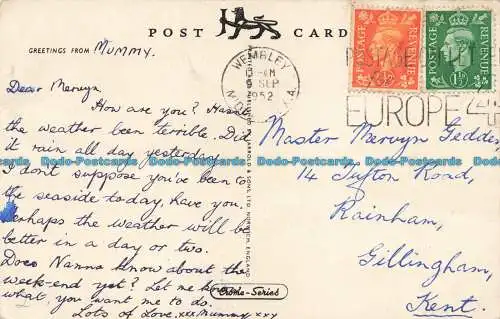 POST CARD
GREETINGS FROM MUMMY.
WEMBLEY
9 SEP
1952
POSTAGE REVENUE
POSTAGE REVENUE
1½D
EUROPE 4
Dear Mervyn
How are you? Hasn't
the weather been terrible. Did
it rain all day yesterday.
I don't suppose you've been to
the seaside to-day, have you.
Perhaps the weather will be
better in a day or two.
Does Nanna know about the
week-end yet? Let me know
what you want me to do.
Lots of Love xxx Mummy xxx
Master Mervyn Geddes
14 Tufton Road,
Rainham,
Gillingham,
Kent.
& SONS, LTD. NORWICH, ENGLAND
Crome-Series
Dodo-Postcards Dodo-Postcards Dodo-Postcards Dodo-Postcards Dodo-Postcards